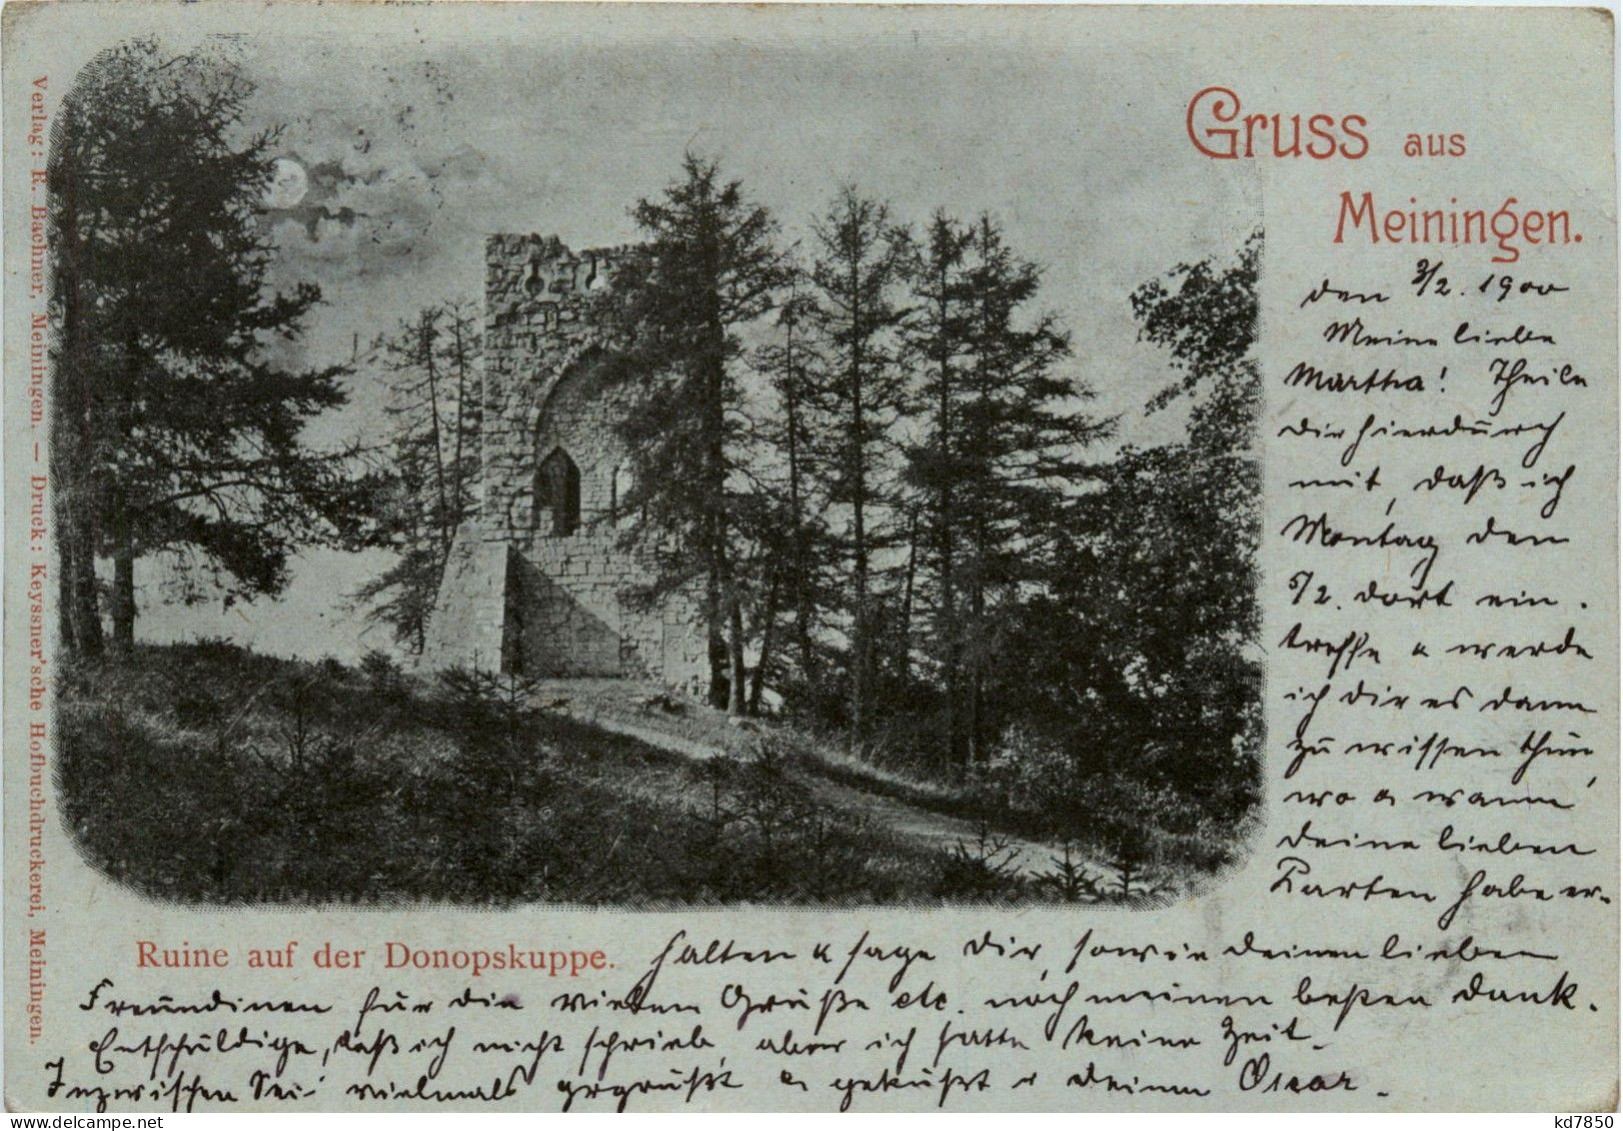 Gruss aus
Meiningen.
den 3/2. 1900
Meine liebe
Martha! Theile
Dir hierdurch
mit, daß ich
Montag den
5/2. dort ein-
treffe u werde
ich Dir es dann
zu wissen thun,
wo u wann
Deine lieben
Karten habe er-
halten u sage Dir, sowie Deinen lieben
Freundinen für die vielen Grüße etc. noch meinen besten Dank.
Entschuldige, daß ich nicht schrieb, aber ich hatte keine Zeit.
Inzwischen Sei vielmals gegrüßt u geküßt v Deinem Oscar.
Ruine auf der Donopskuppe.
Verlag: R. Bachner, Meiningen. — Druck: Keyssner'sche Hofbuchdruckerei, Meiningen.
delcampe.net
kd7850